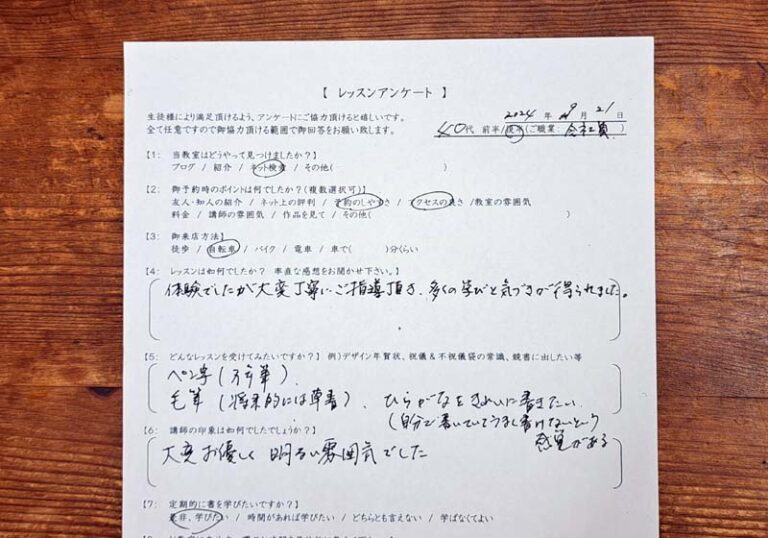 【 レッスンアンケート 】
生徒様により満足頂けるよう、アンケートにご協力頂けると嬉しいです。
2024 年 9 月 21 日
全て任意ですので御協力頂ける範囲で御回答をお願い致します。
40代 前半/後半(ご職業: 会社員 )
【1: 当教室はどうやって見つけましたか?】
ブログ / 紹介 / ネット検索 / その他( )
【2: 御予約時のポイントは何でしたか?(複数選択可)】
友人・知人の紹介 / ネット上の評判 / 予約のしやすさ / アクセスの良さ /教室の雰囲気
料金 / 講師の雰囲気 / 作品を見て / その他( )
【3: 御来店方法】
徒歩 / 自転車 / バイク / 電車 / 車で( )分くらい
【4: レッスンは如何でしたか? 率直な感想をお聞かせ下さい。】
体験でしたが大変丁寧にご指導頂き、多くの学びと気づきが得られました。
【5: どんなレッスンを受けてみたいですか?】 例)デザイン年賀状、祝儀&不祝儀袋の常識、競書に出したい等
ペン字(万年筆)、
毛筆(将来的には草書)、ひらがなをきれいに書きたい。
(自分で書いていてうまく書けないという
感覚がある
【6: 講師の印象は如何でしたでしょうか?】
大変お優しく明るい雰囲気でした
【7: 定期的に書を学びたいですか?】
是非、学びたい / 時間があれば学びたい / どちらとも言えない / 学ばなくてよい